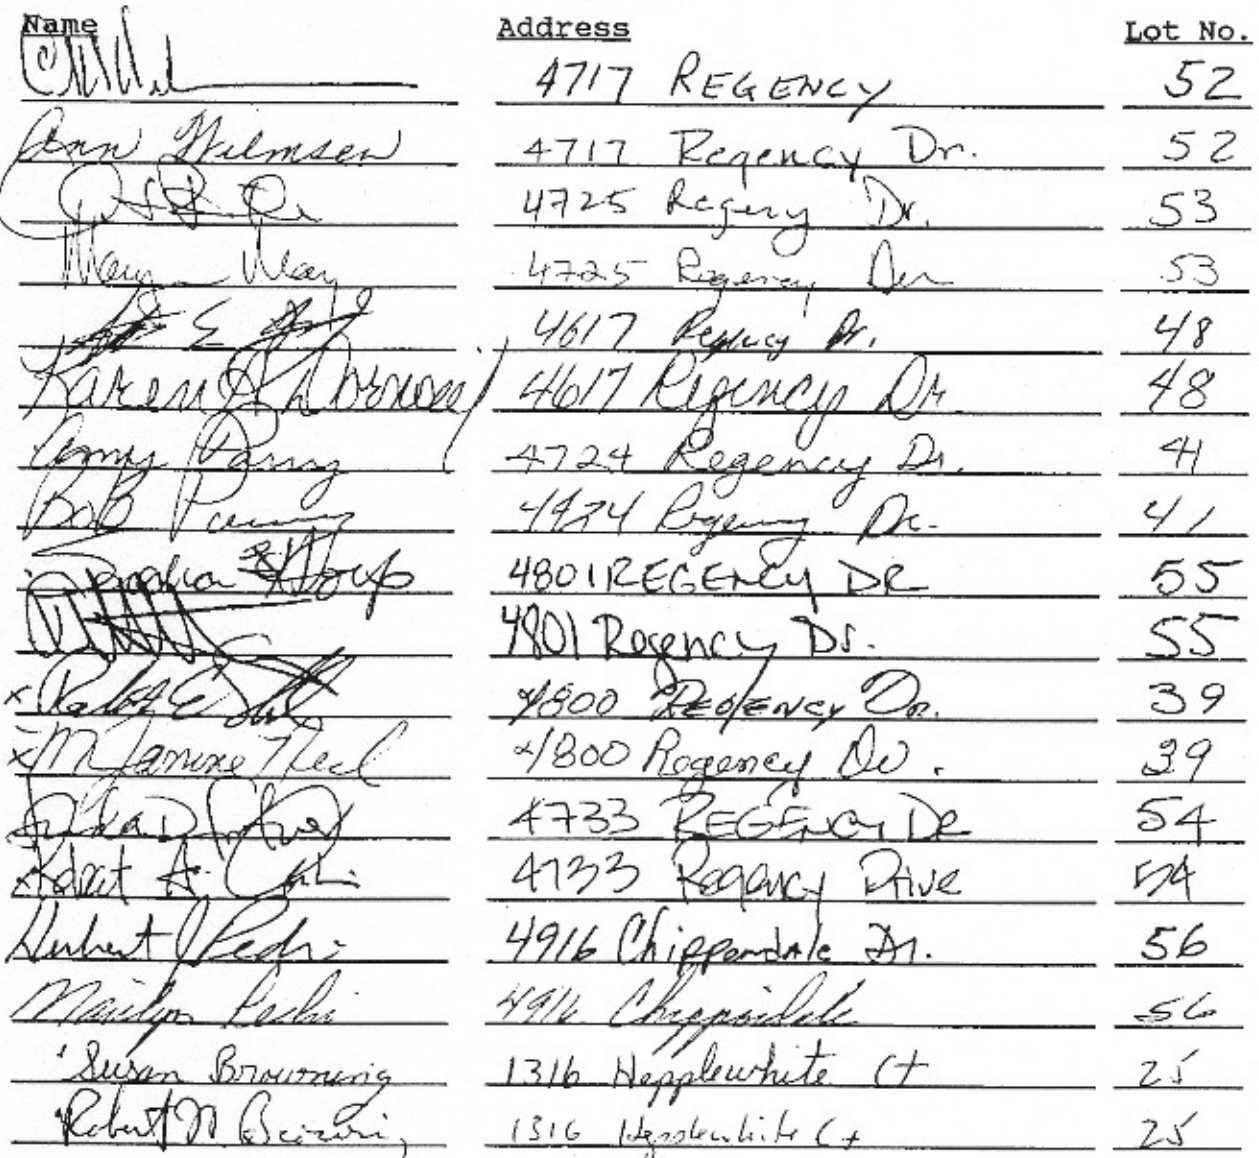 Name Address Lot No.
4717 REGENCY 52
Ann Wilmsen 4717 Regency Dr. 52
4725 Regency Dr. 53
4725 Regency 53
E 4617 Regency Dr. 48
Karen 4617 Regency Dr 48
Amy Parry 4724 Regency Dr. 41
Bob 4724 Regency Dr. 41
4801 REGENCY DR 55
4801 Regency Dr. 55
x E 4800 REGENCY Dr. 39
x M Janine 4800 Regency Dr. 39
4733 REGENCY DR 54
x Robert A. 4733 Regency Drive 54
Herbert Pedri 4916 Chippendale Dr. 56
Marilyn Pedri 4916 Chippendale 56
Susan Browning 1316 Hepplewhite Ct 25
Robert M Browning 1316 Hepplewhite Ct 25